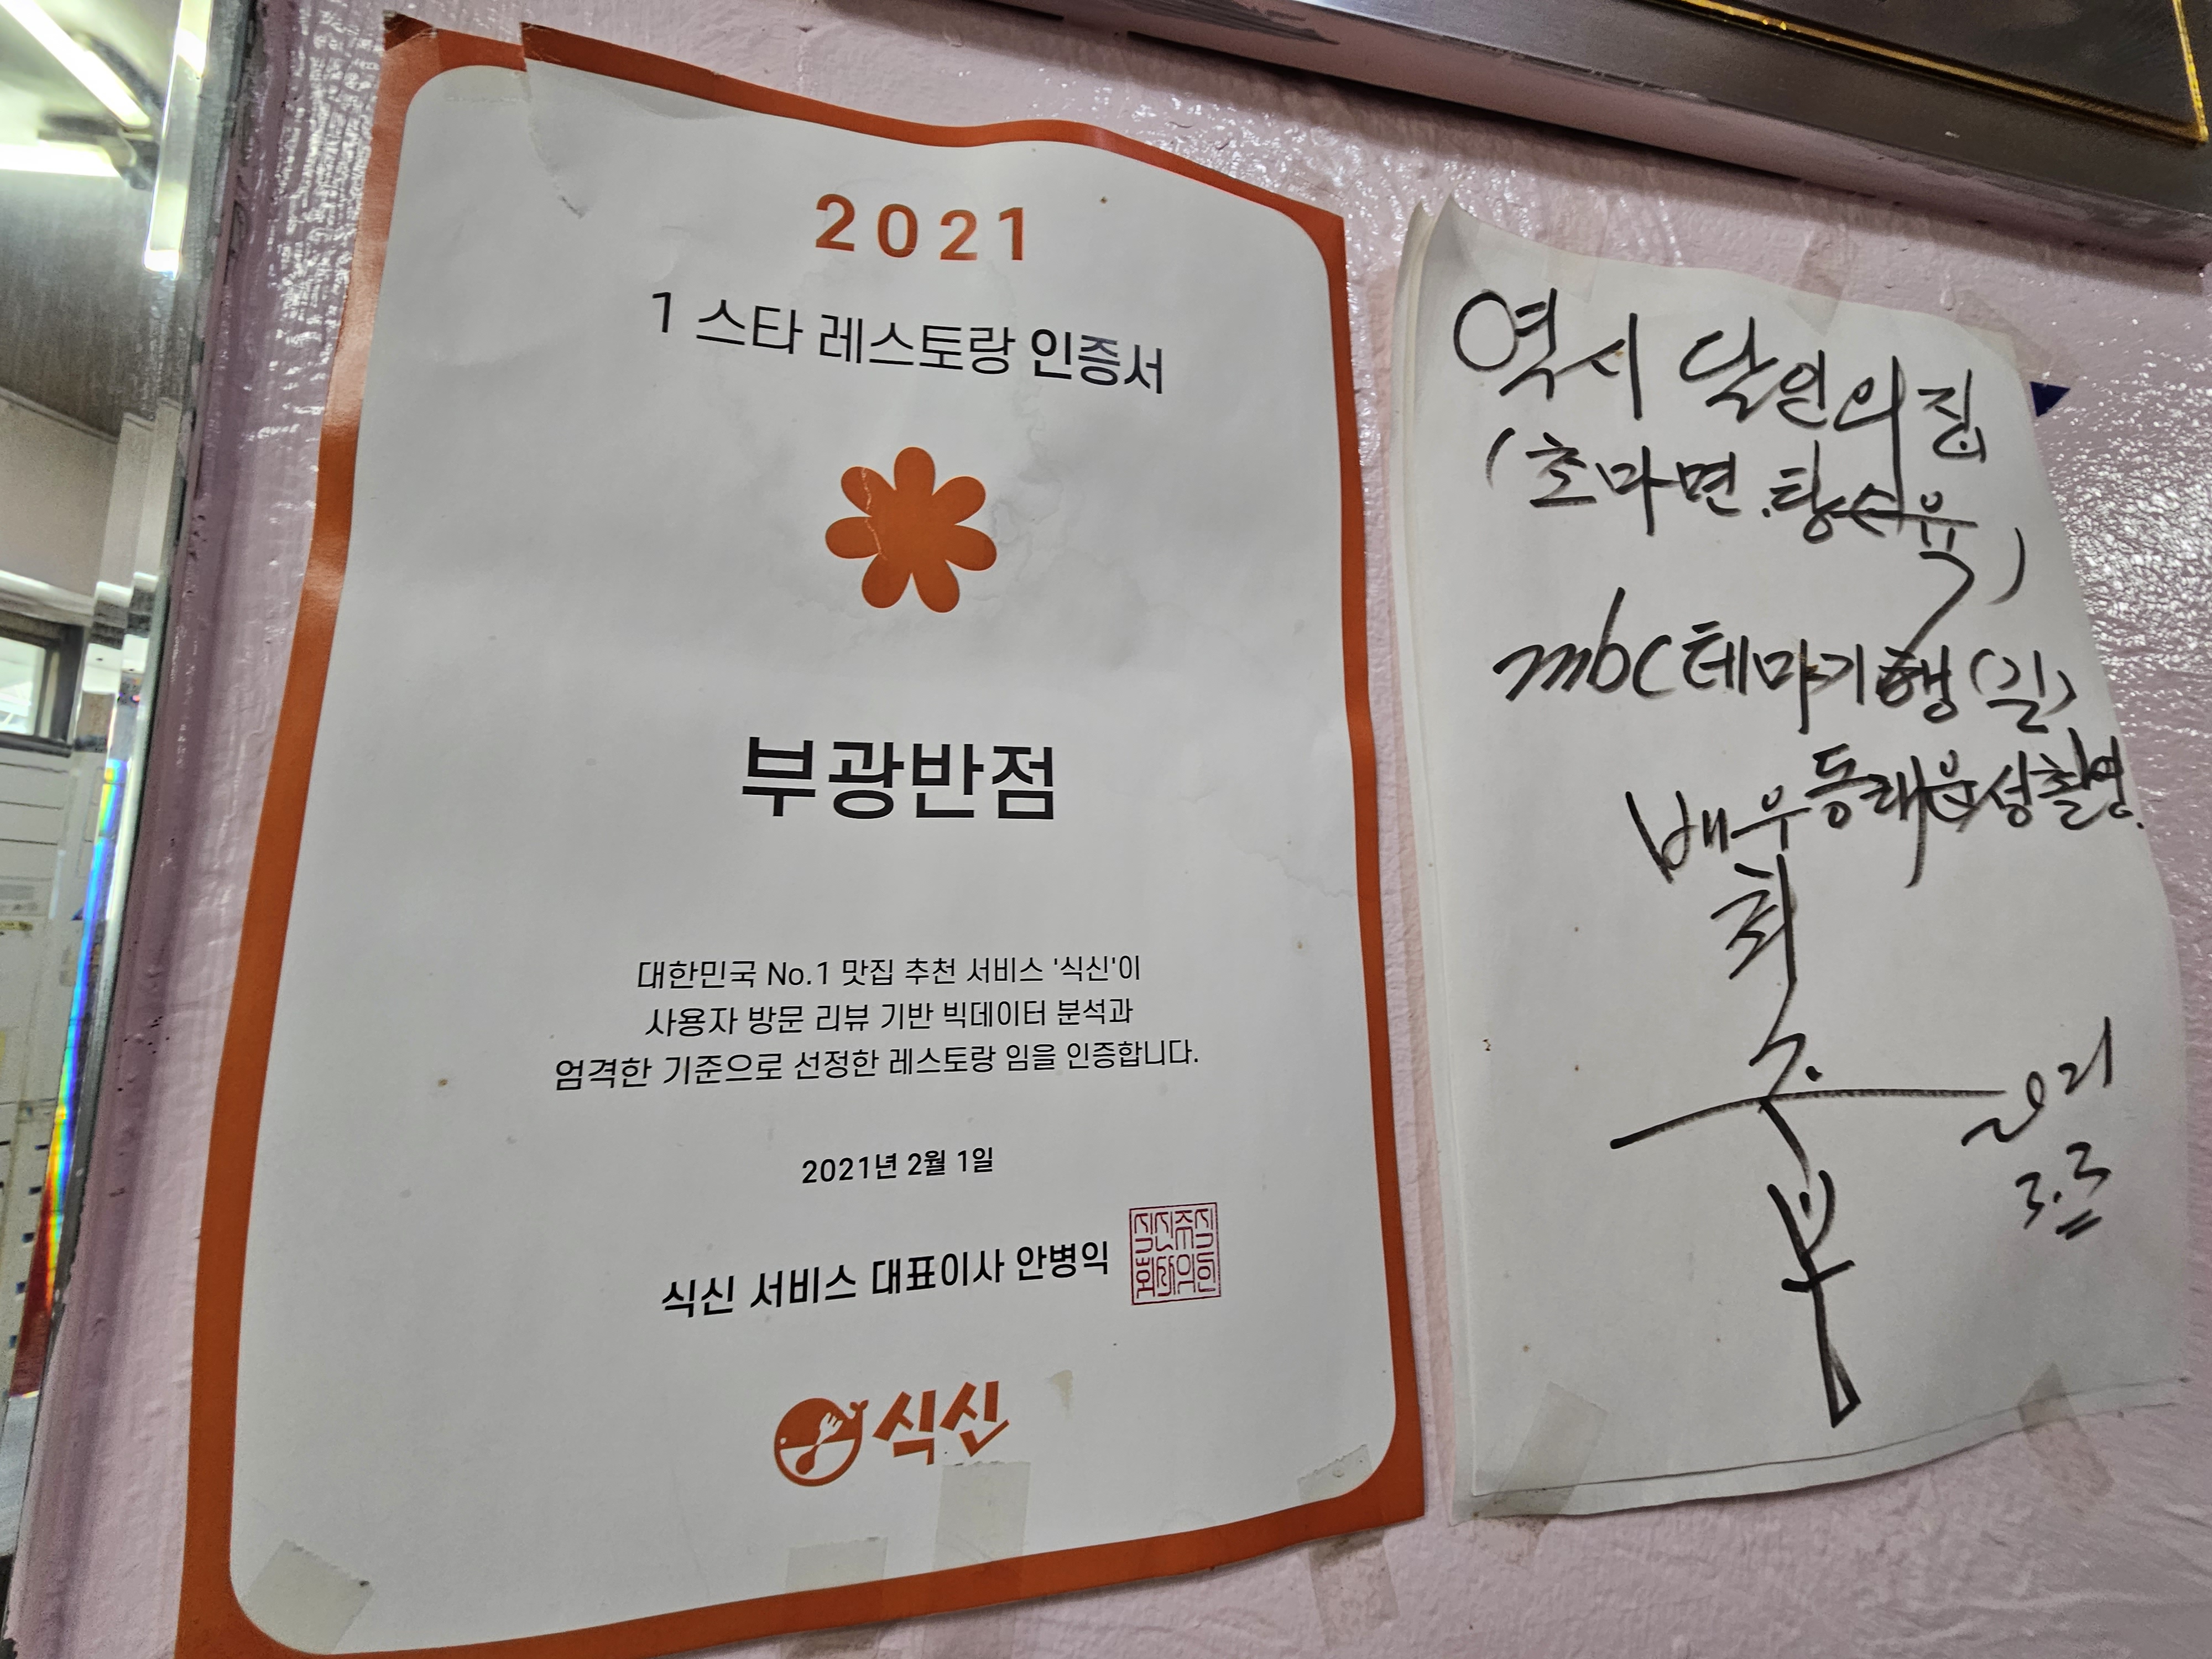 2021
1 스타 레스토랑 인증서
부광반점
대한민국 No.1 맛집 추천 서비스 '식신'이
사용자 방문 리뷰 기반 빅데이터 분석과
엄격한 기준으로 선정한 레스토랑 임을 인증합니다.
2021년 2월 1일
식신 서비스 대표이사 안병익
식신
역시 달인의 집
(초마면.탕수육)
mbc 테마기행 (길)
동래읍성촬영.
배우
최
3.3